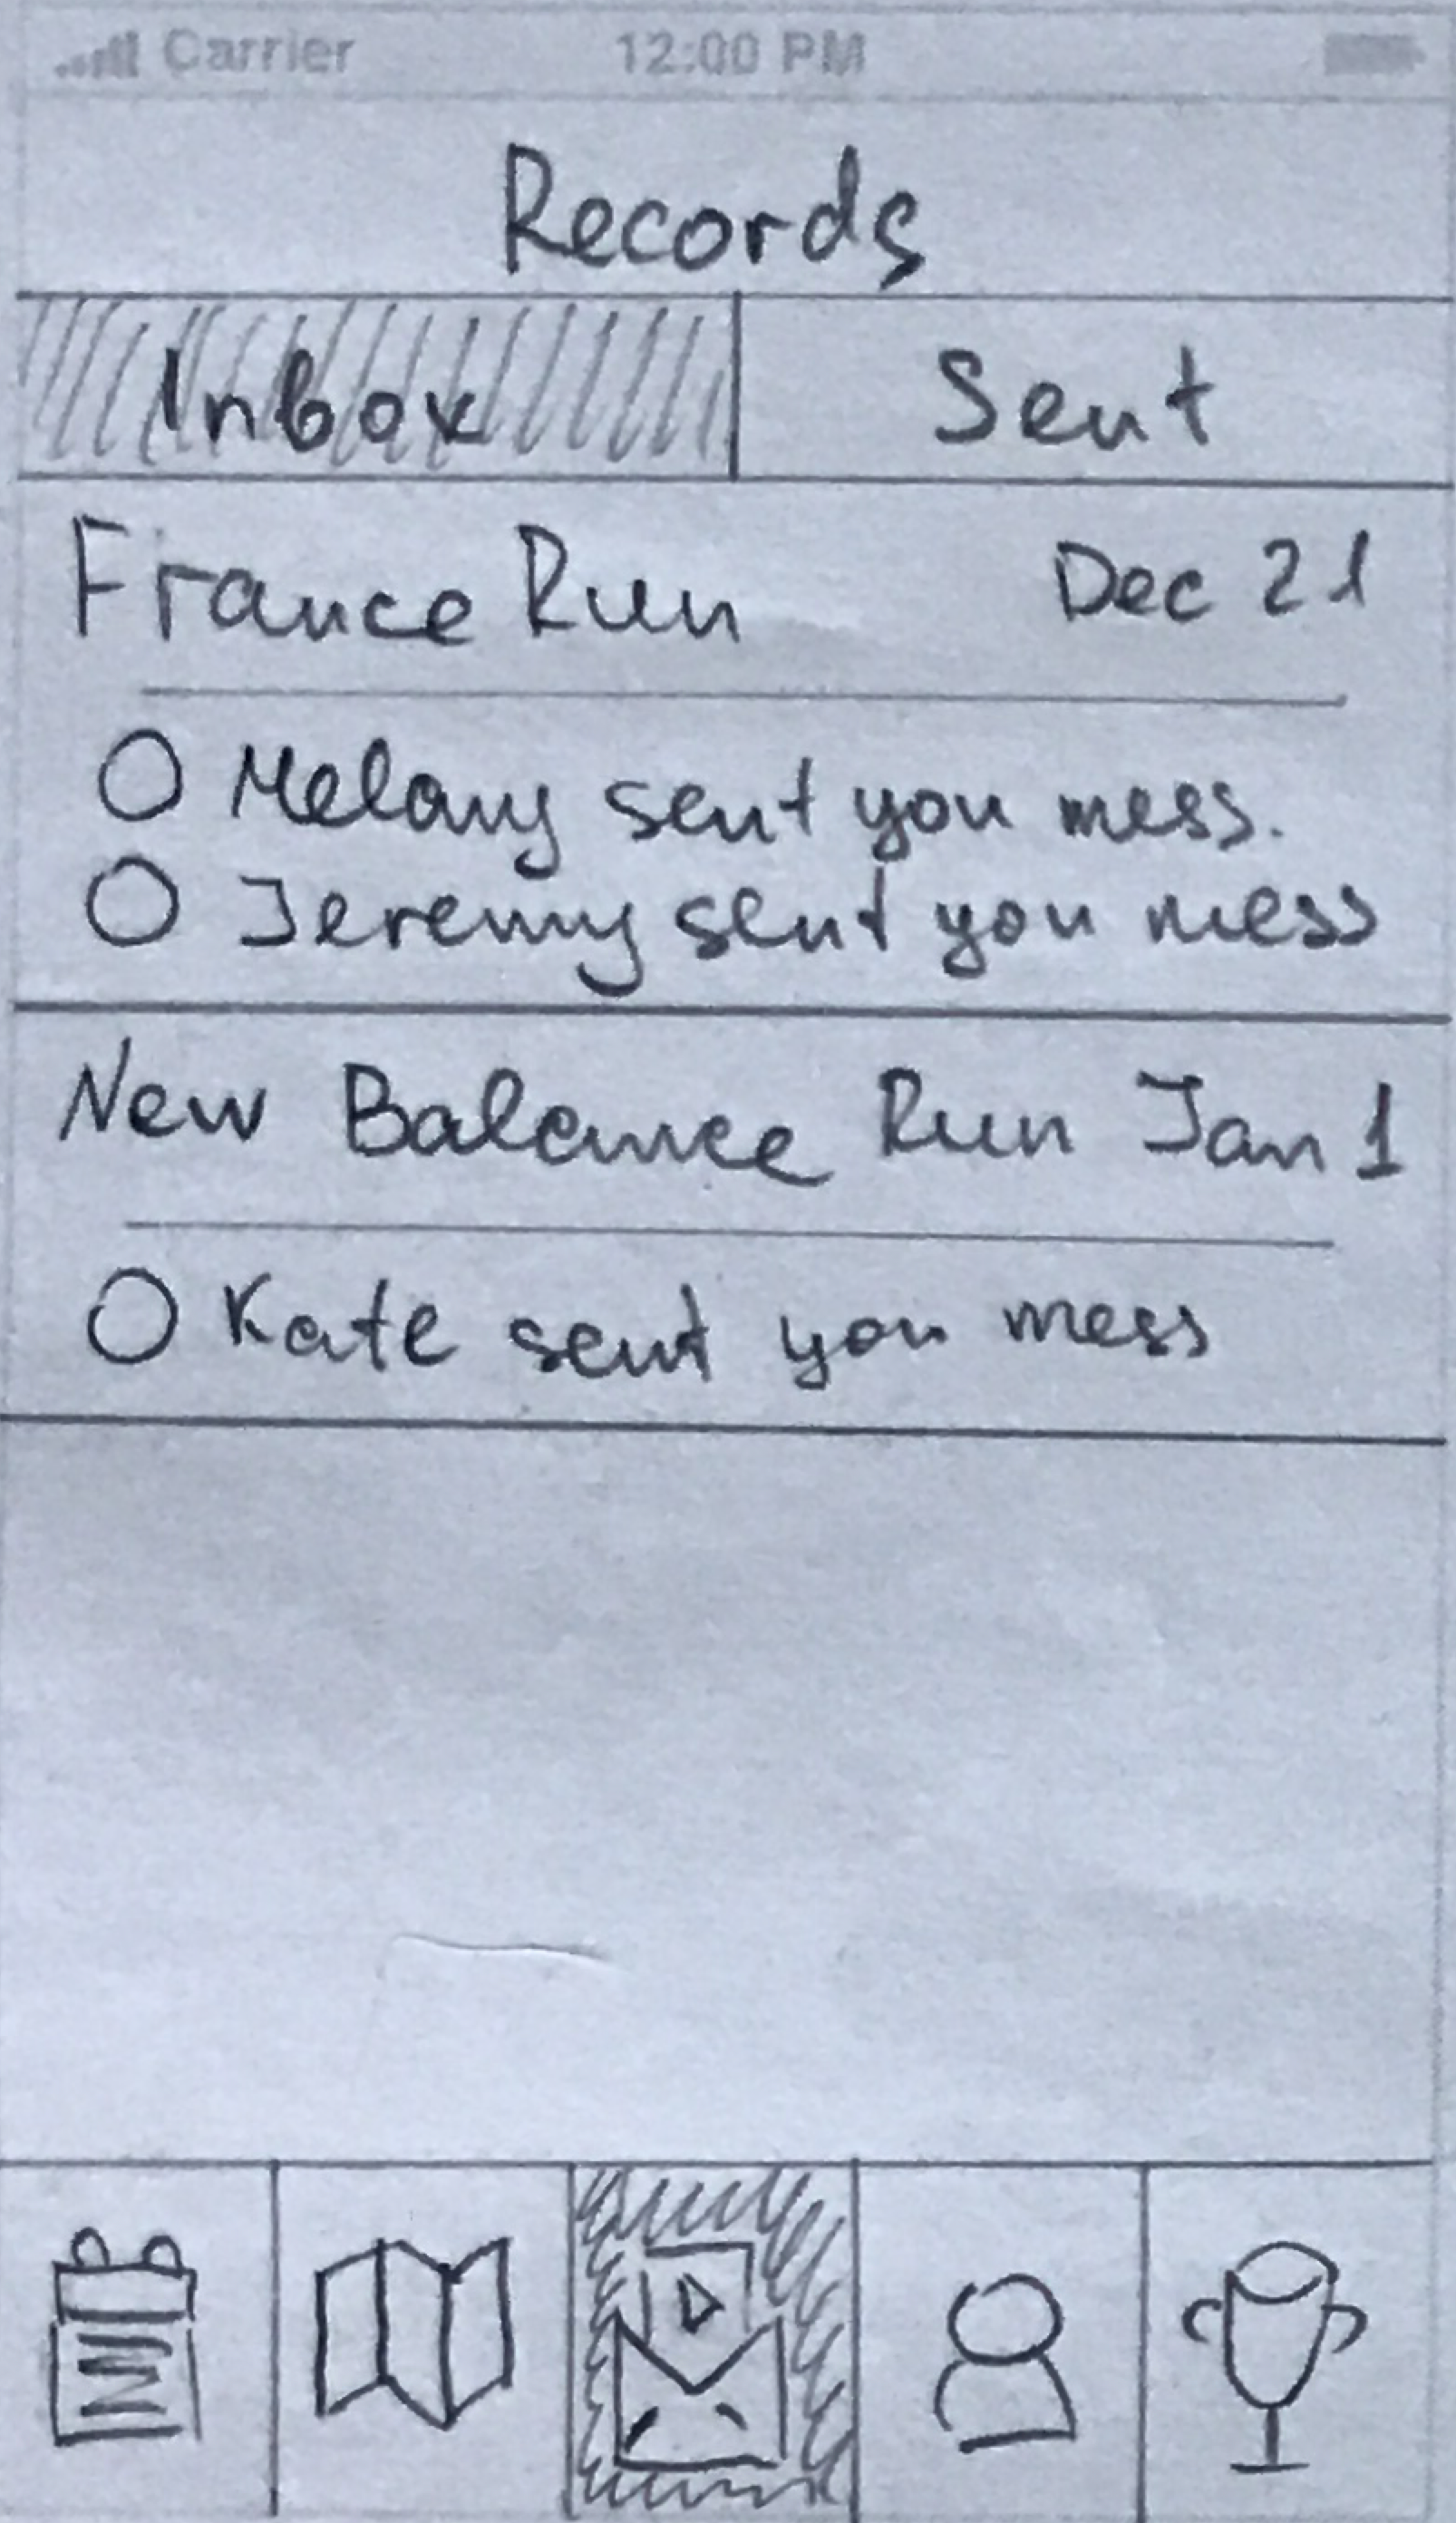 Carrier 12:00 PM
Records
Inbox Sent
France Run Dec 21
Melany sent you mess.
Jeremy sent you mess
New Balance Run Jan 1
Kate sent you mess